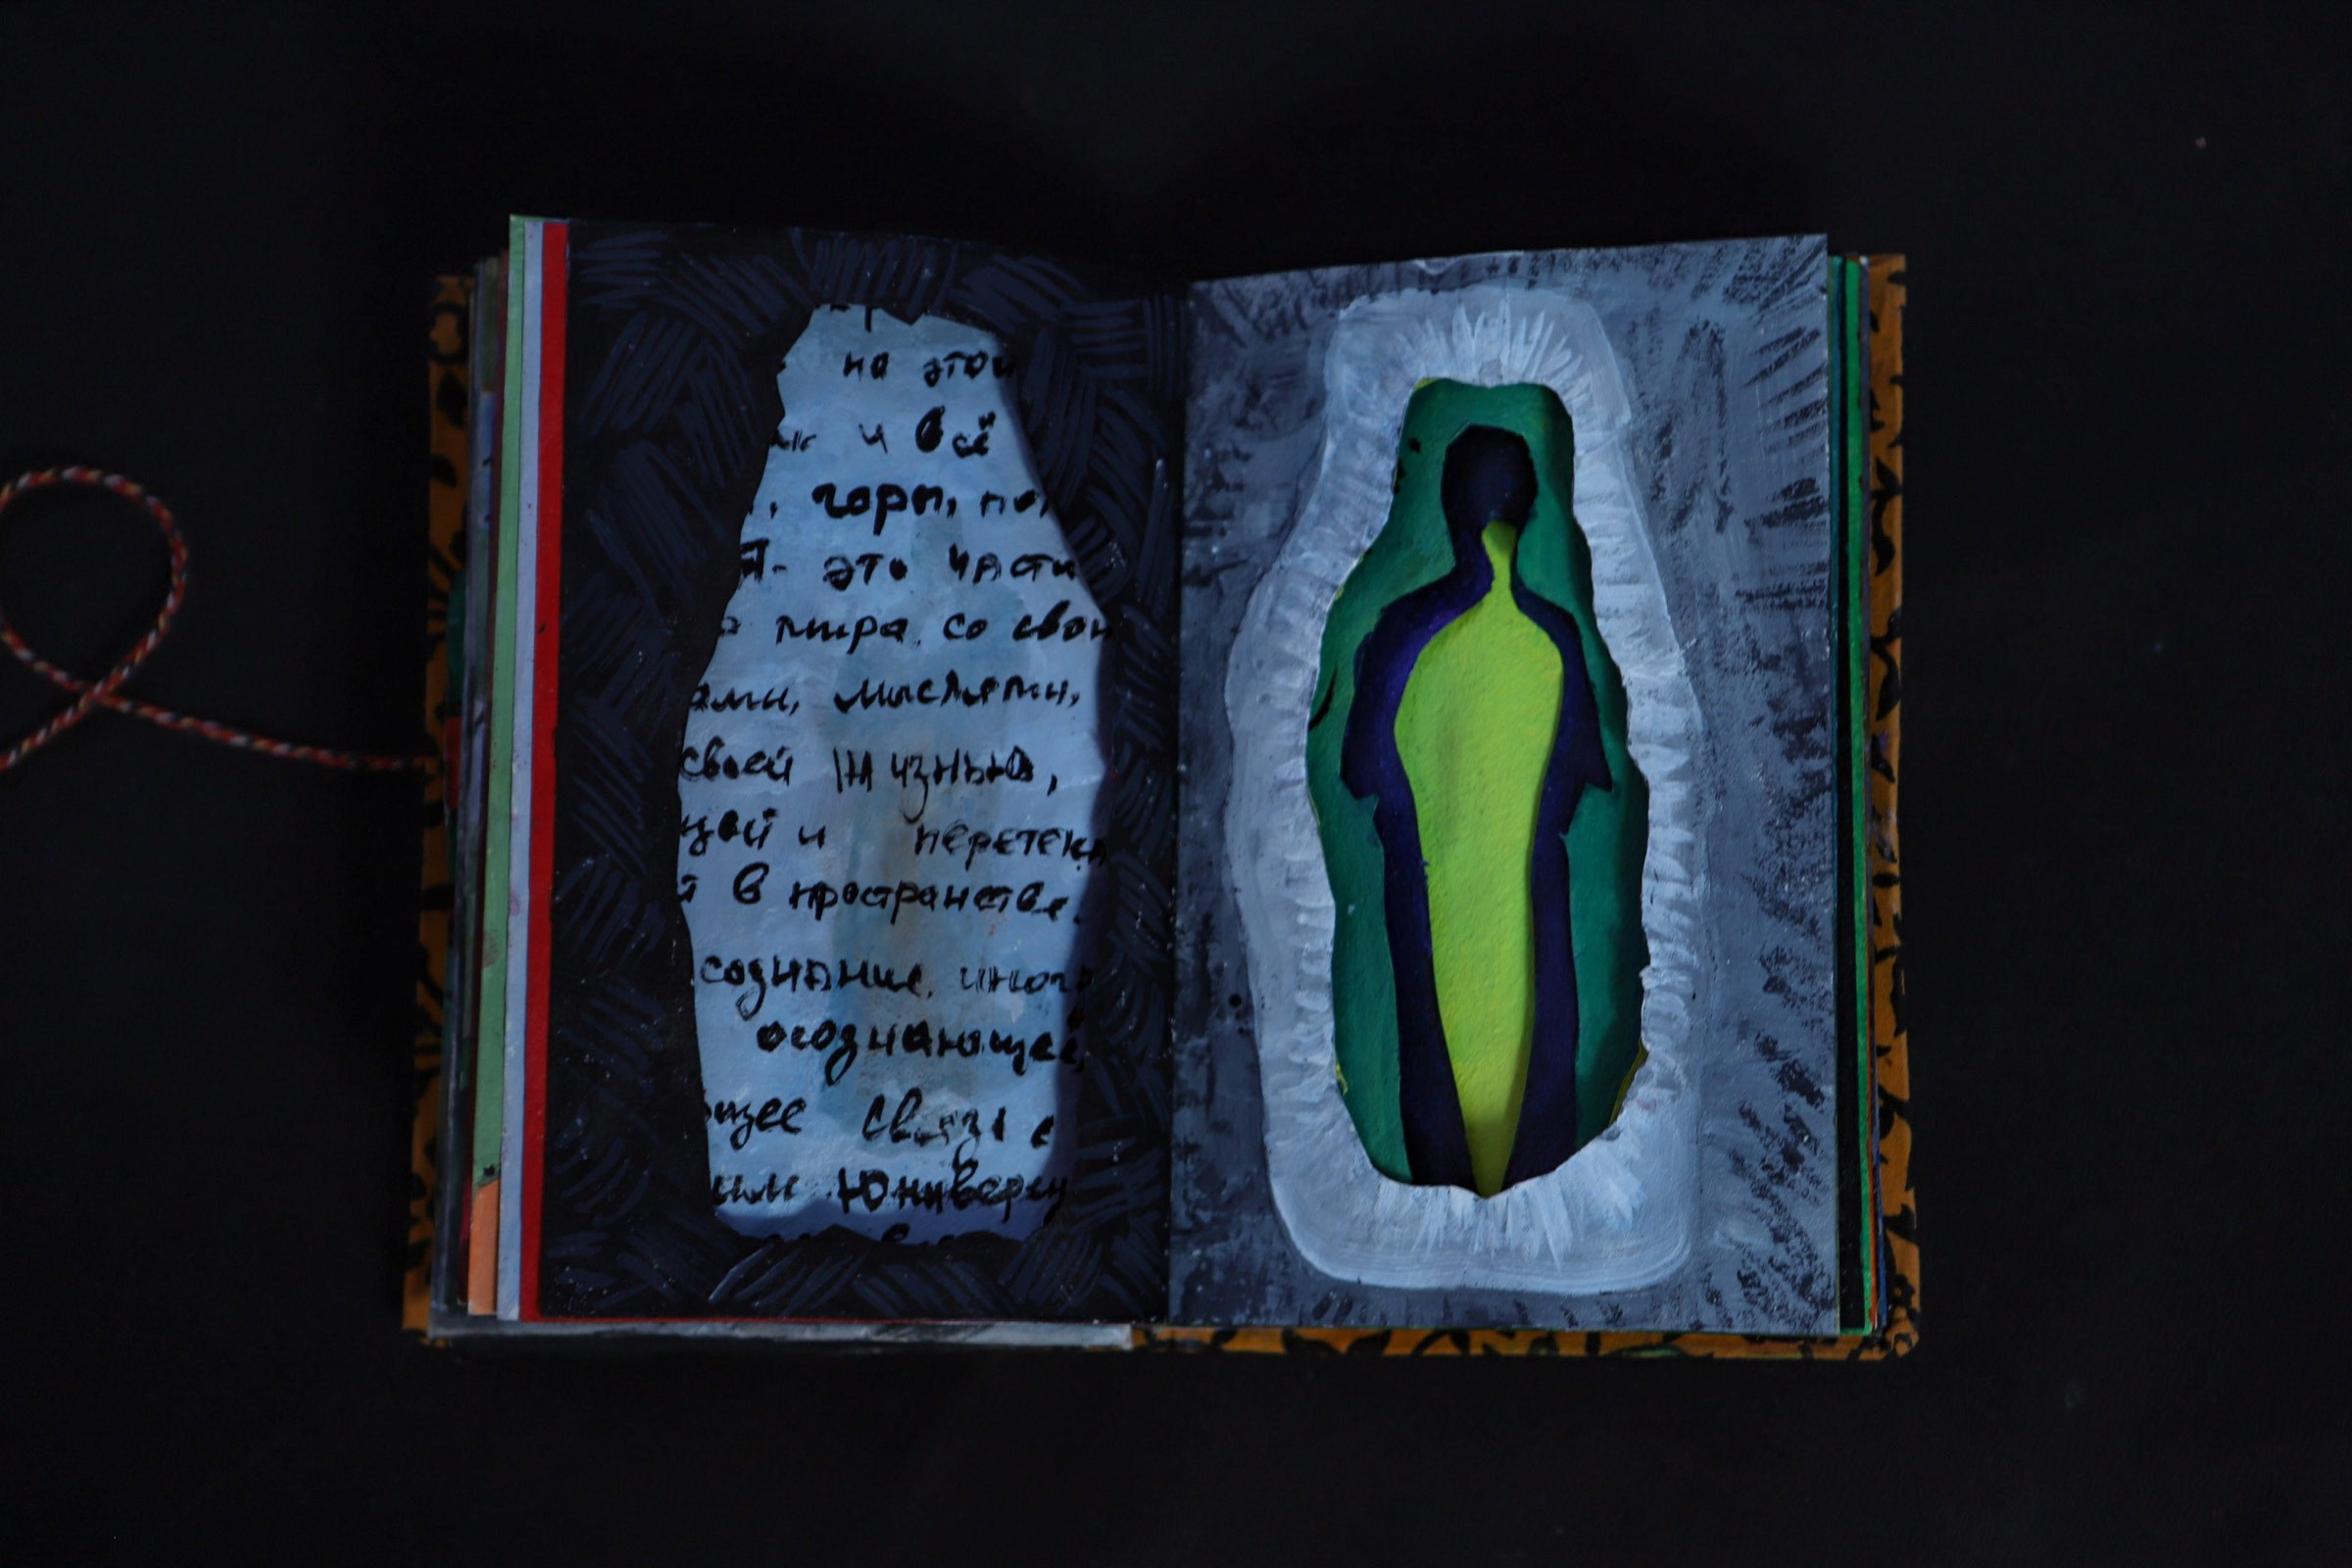 на этой
и всё
, горы, по
й - это части
мира, со свои
ами, мыслями,
своей жизнью,
ией и перетека
й в пространстве.
сознание, иног
осознающее,
ющее связь с
ним Юниверсу